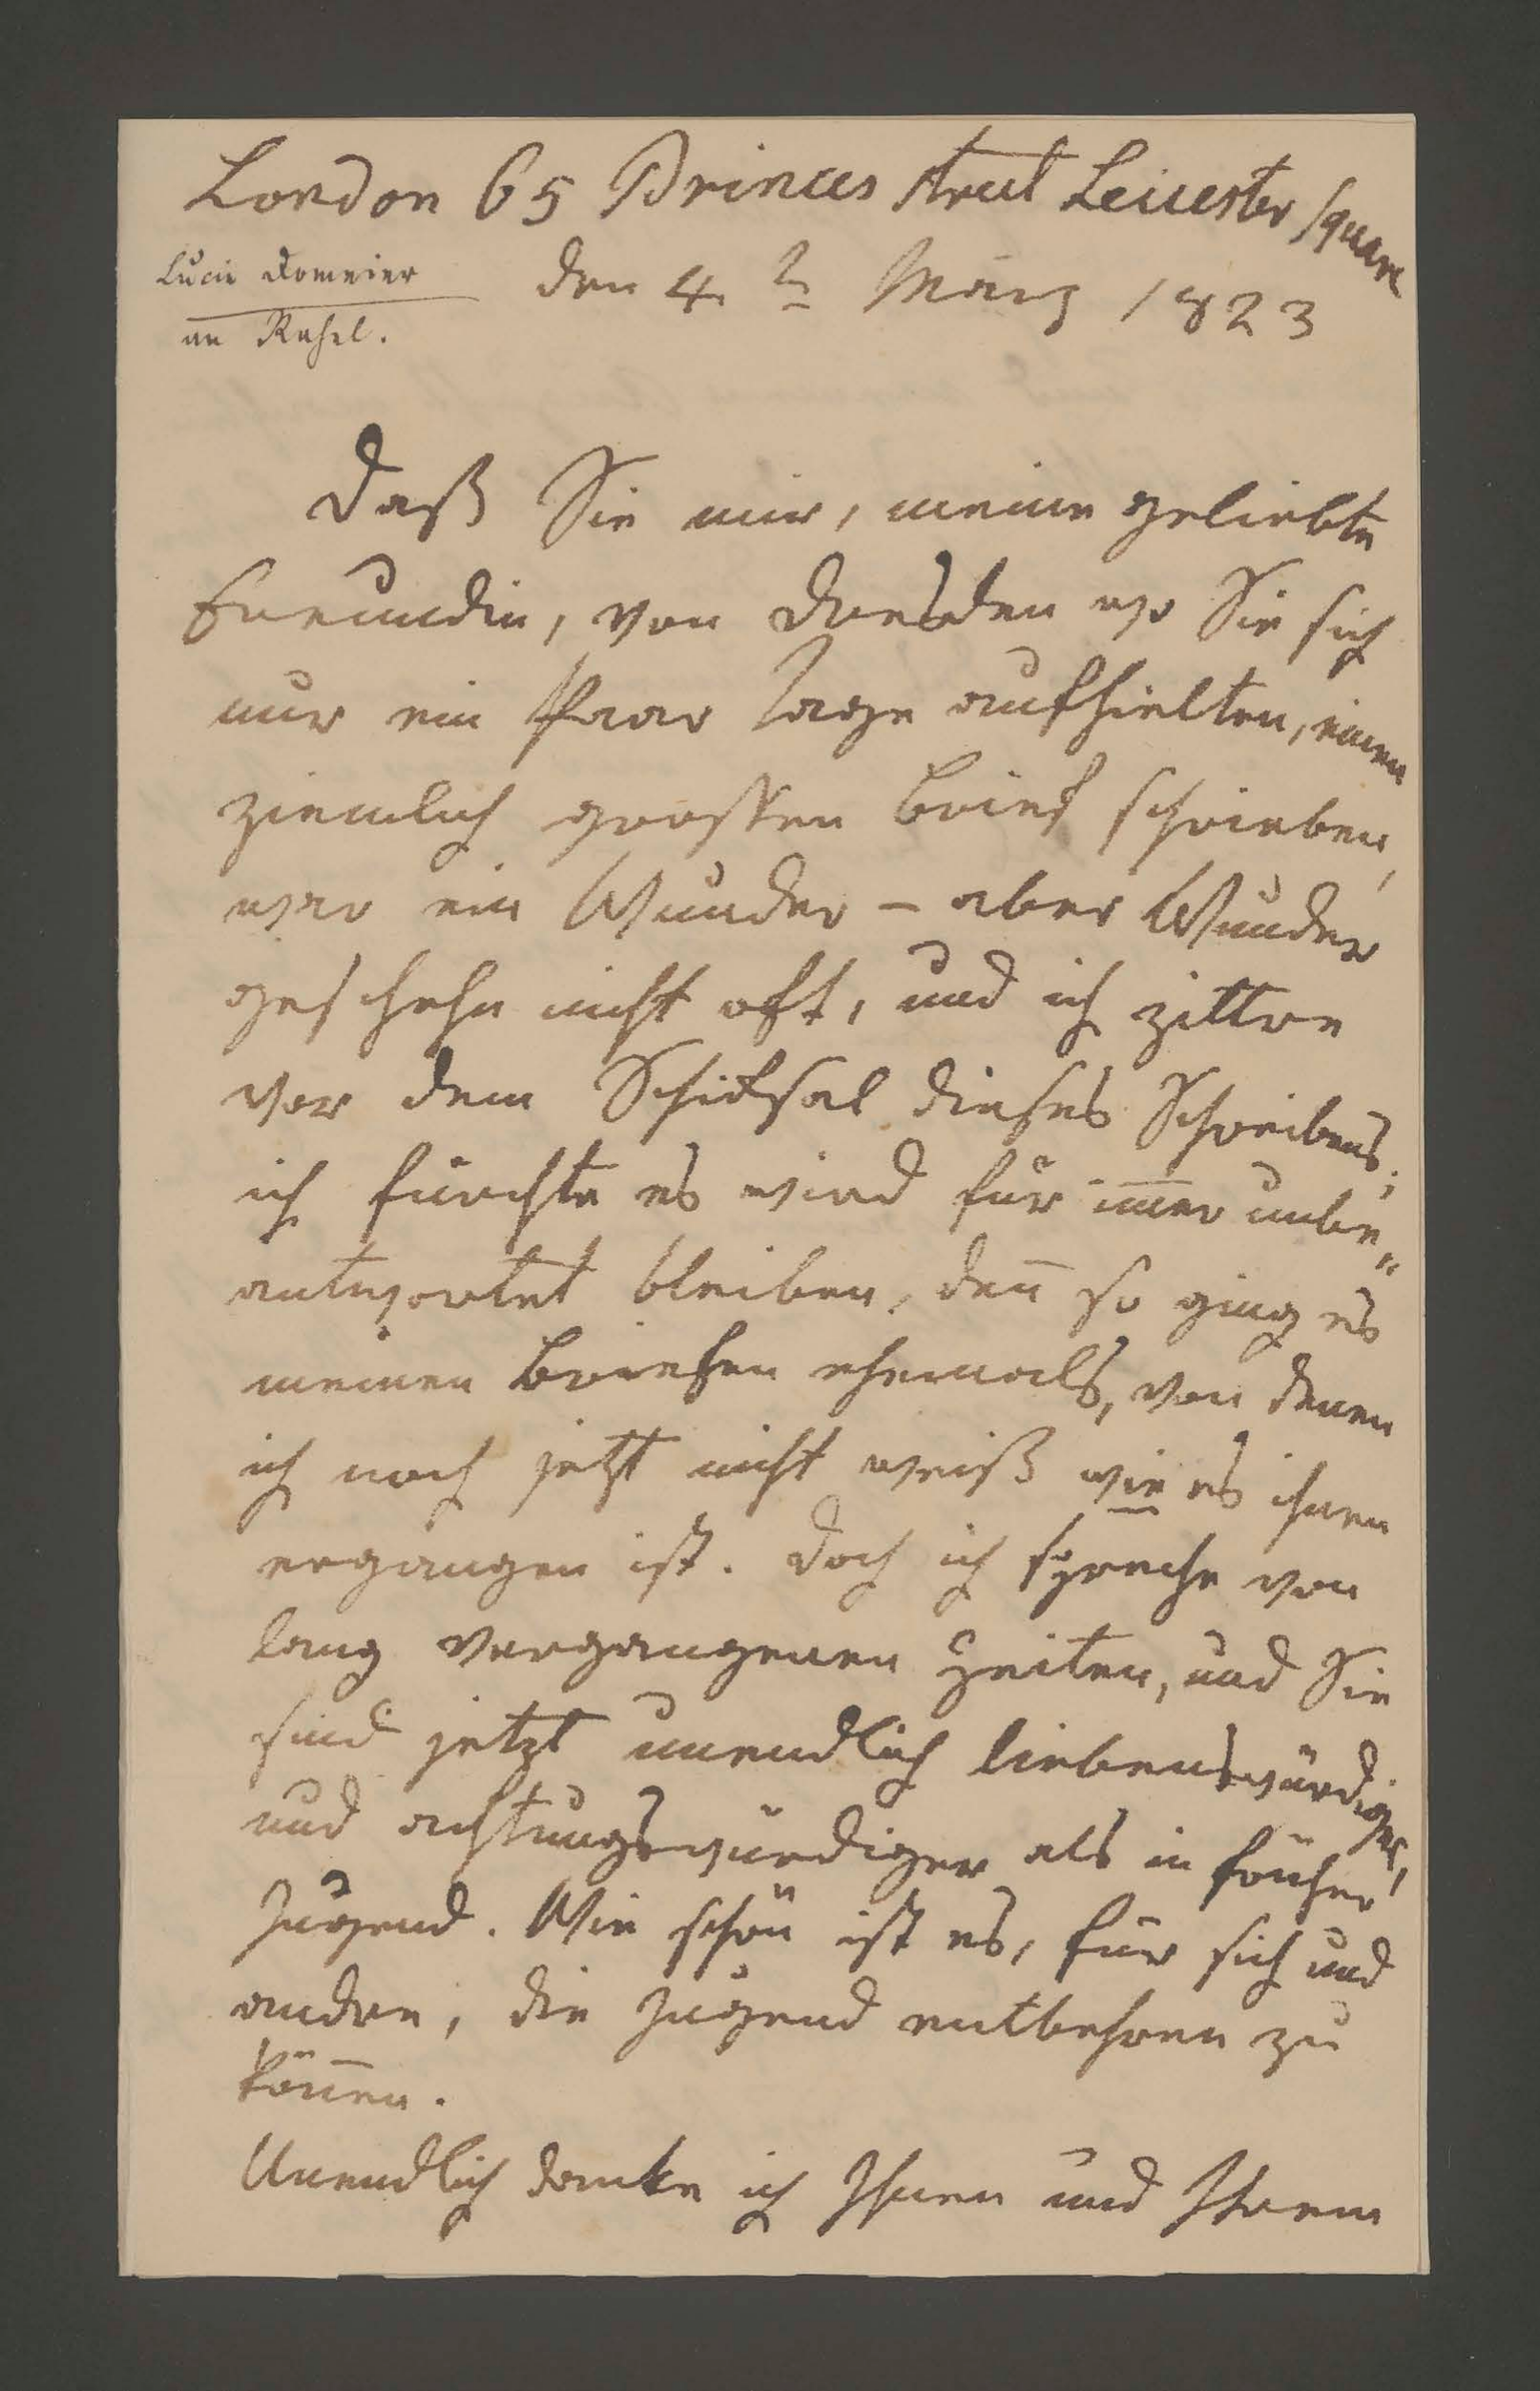 London 65 Princes street Leicester square
Lucie Domeier
an Rahel.
den 4. März 1823
Daß Sie mir, meine geliebte
Freundin, von Dresden wo Sie sich
nur ein Paar Tage aufhielten, einen
ziemlich grossen Brief schrieben,
war ein Wunder – aber Wunder
geschehn nicht oft, und ich zittre
vor dem Schicksal dieses Schreibens;
ich fürchte es wird für im̅er unbe„
antwortet bleiben, den̅ so ging es
meinen Briefen ehemals, von denen
ich noch jetzt nicht weiß wie es ihnen
ergangen ist. Doch ich spreche von
lang vergangenen Zeiten, und Sie
sind jetzt unendlich liebenswürdiger,
und achtungswürdiger als in früher
Jugend. Wie schön ist es, für sich und
andre, die Jugend entbehren zu
kön̅en.
Unendlich danke ich Ihnen und Ihrem